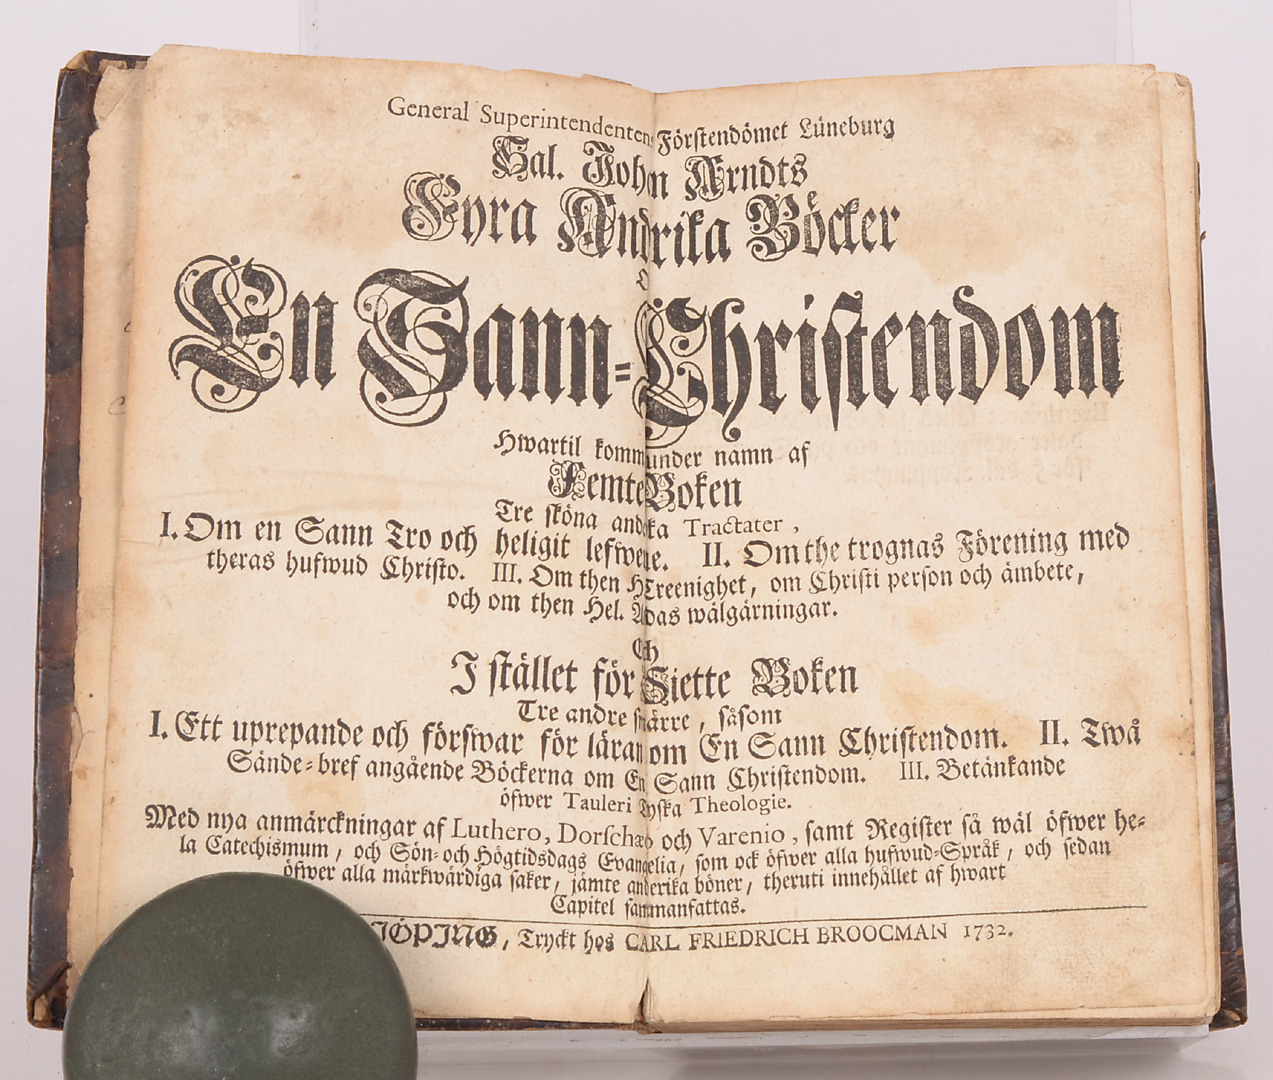 General Superintendentens Förstendömet Lüneburg
Sal. Johan Arndts
Fyra Andrika Böcker
En Sann-Christendom
Hwartil komm under namn af
Femte Boken
Tre sköna andeka Tractater,
I. Om en Sann Tro och heligit lefwerne. II. Om the trognas Förening med
theras hufwud Christo. III. Om then H. Treenighet, om Christi person och ämbete,
och om then Hel. Andas wälgärningar.
Och
I stället för Siette Boken
Tre andre smärre, såsom
I. Ett uprepande och förswar för läran om En Sann Christendom. II. Twå
Sände-bref angående Böckerna om En Sann Christendom. III. Betänkande
öfwer Tauleri Tyska Theologie.
Med nya anmärckningar af Luthero, Dorschæo och Varenio, samt Register så wäl öfwer he-
la Catechismum, och Sön- och Högtidsdags Evangelia, som ock öfwer alla hufwud-Språk, och sedan
öfwer alla märkwärdiga saker, jämte anderika böner, theruti innehållet af hwart
Capitel sammanfattas.
JÖPING, Tryckt hos CARL FRIEDRICH BROOCMAN 1732.